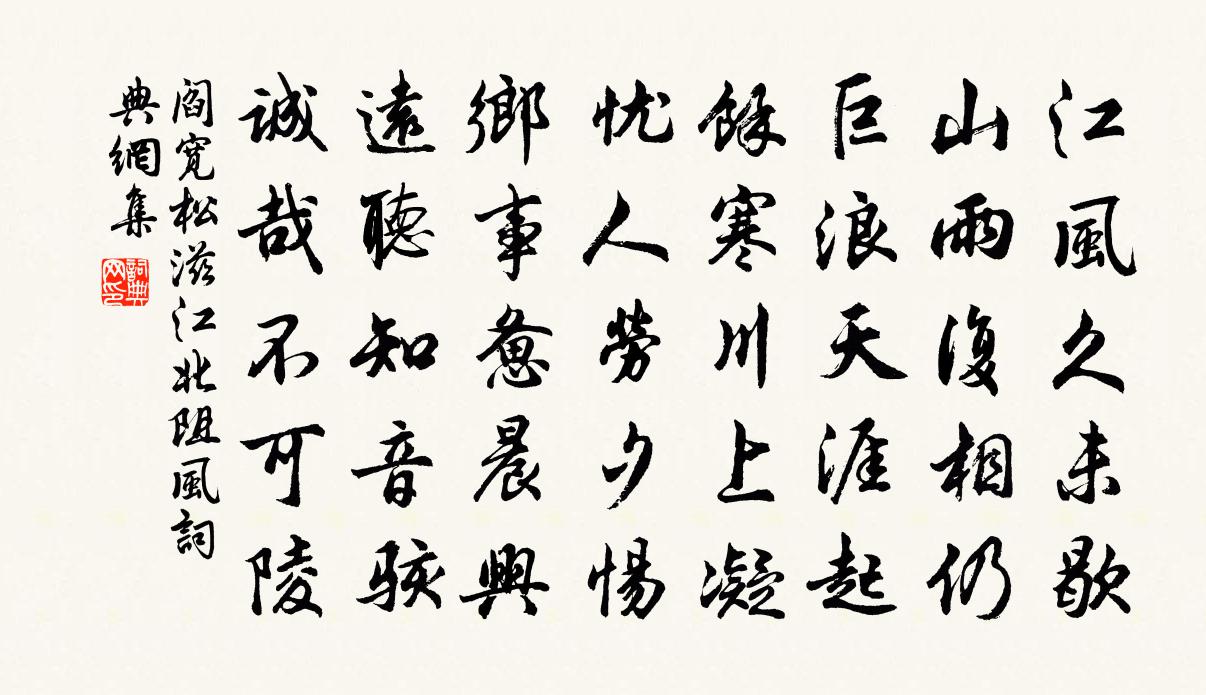 江風久未歇
山雨復相仍
巨浪天涯起
餘寒川上凝
忧人勞夕惕
鄉事憊晨興
遠聽知音駭
誠哉不可陵
閻寬松滋江北阻風詞
典網集
詞典
网印